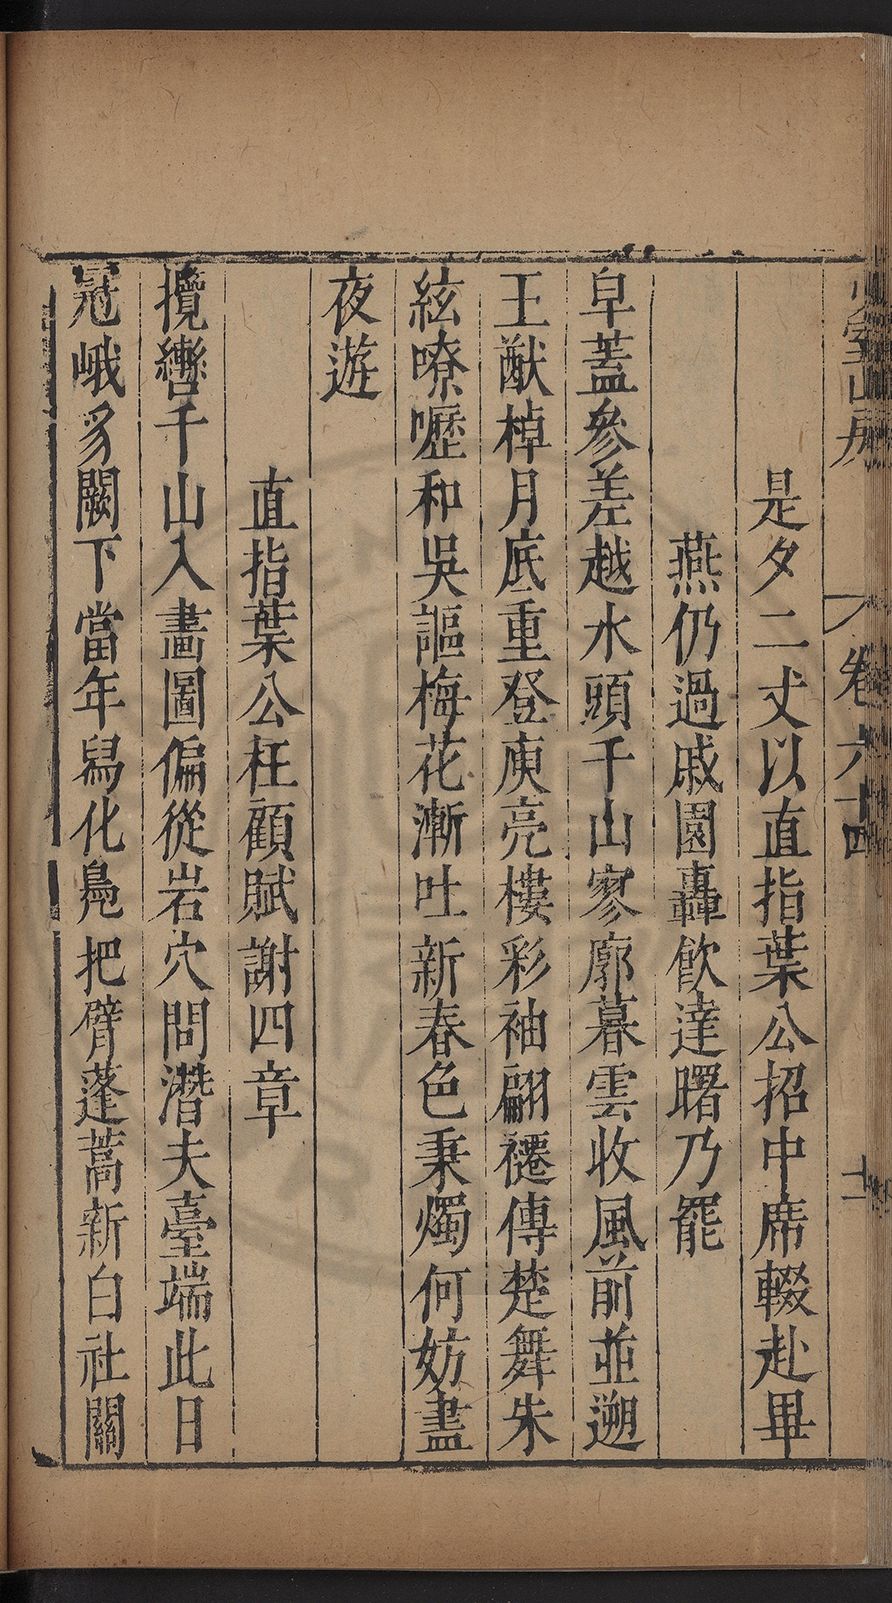 是夕二丈以直指葉公招中席輟赴畢
燕仍過戚園轟飲達曙乃罷
皁蓋參差越水頭千山寥廓暮雲收風前並遡
王猷棹月底重登庾亮樓彩袖翩褼傳楚舞朱
絃嘹嚦和吳謳梅花漸吐新春色秉燭何妨盡
夜遊
直指葉公枉顧賦謝四章
攬轡千山入畫圖偏從岩穴問潛夫臺端此日
冠峨豸闕下當年舄化鳧把臂蓬蒿新白社關
山房
卷六十四
十二